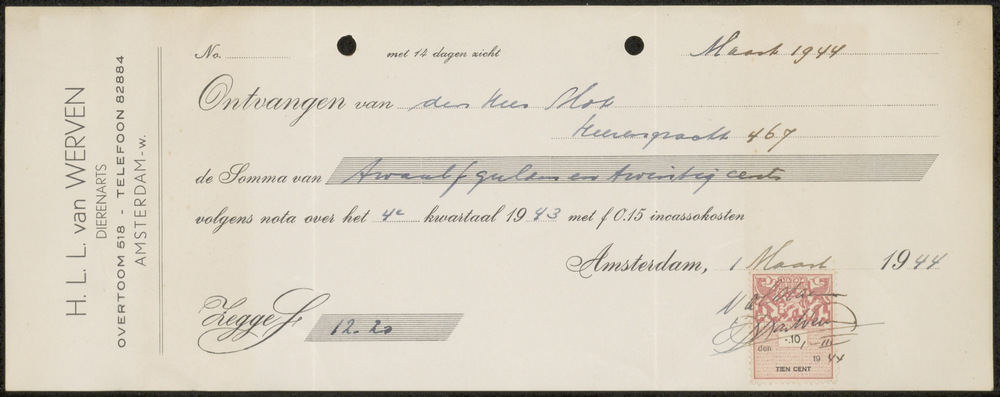 H. L. L. van WERVEN
DIERENARTS
OVERTOOM 518 - TELEFOON 82884
AMSTERDAM-W.
No. met 14 dagen zicht Maart 1944
Ontvangen van den Heer Mok
Heerengracht 467
de Somma van Twaalf gulden en twintig cents
volgens nota over het 4e kwartaal 1943 met f 0.15 incassokosten
Amsterdam, 1 Maart 1944
Zegge f 12.20
Voldaan
-.10
den III 1944
TIEN CENT